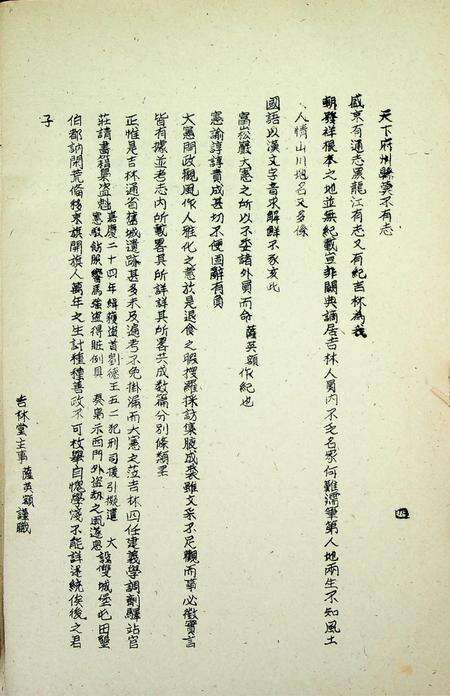 天下府州縣莫不有志
盛京有通志黑龍江有志又有紀吉林為我
朝發祥根本之地並無紀載豈非闕典謫居吉林人員內不乏名家何難濡筆第人地兩生不知風土
人情山川地名又多係
國語以漢文字音求解鮮不豕亥此
富崧巖大憲之所以不委諸外員而命薩英額作紀也
憲諭諄諄責成甚切不便固辭有負
大憲開政觀風作人雅化之意於是退食之暇搜羅採訪集腋成裘雖文采不足觀而事必徵實言
皆有據並考志內所載畧其所詳詳其所畧共成數篇分別條類至
正惟是吉林通省舊城遺跡甚多未及遍考不免掛漏而大憲之蒞吉林四任建義學調劑驛站官
莊請書籍奠盜魁嘉慶二十四年緝獲盜首劉德王五二犯刑司援引擬遣 大憲駁飭照響馬強盜得贓例具奏梟示西門外盜刼之風遂息設雙城堡屯田墾
伯都訥開荒備移京旗閒旗人萬年之生計種種善政不可枚舉自愧學淺不能詳述統俟後之君
子
吉林堂主事薩英額謹識